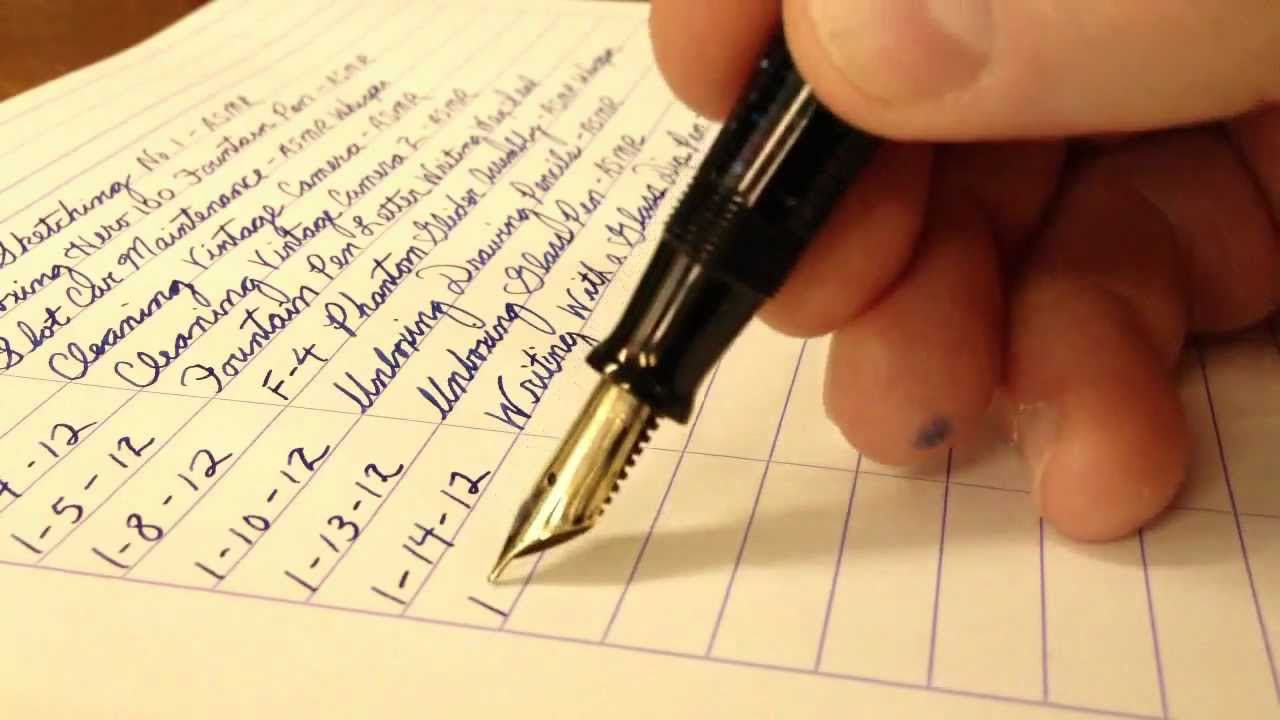 Sketching No 1 - ASMR
Hero 160 Fountain Pen - ASMR
Slot Car Maintenance - ASMR Whisper
Cleaning Vintage Camera - ASMR
4-12 Cleaning Vintage Camera 2 - ASMR
1-5-12 Fountain Pen Letter Writing
1-8-12 F-4 Phantom Glider Assembly - ASMR Whisper
1-10-12 Unboxing Drawing Pencils - ASMR
1-13-12 Unboxing Glass Pen - ASMR
1-14-12 Writing With a Glass Dip Pen
1